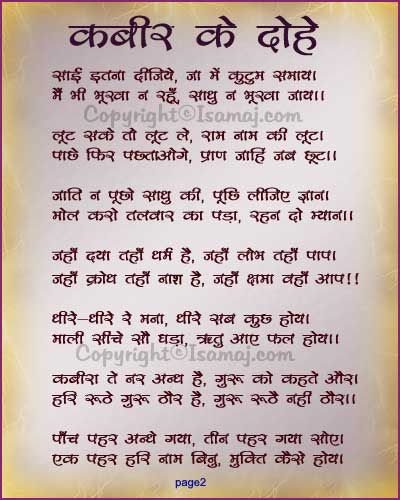 कबीर के दोहे
साई इतना दीजिये, जा में कुटुम समाय।
मैं भी भूखा न रहूँ, साधु न भूखा जाय।।
Copyright©Isamaj.com
लूट सके तो लूट ले, राम नाम की लूट।
पाछे फिर पछताओगे, प्राण जाहिं जब छूट।।
जाति न पूछो साधु की, पूछि लीजिए ज्ञान।
मोल करो तलवार का पड़ा, रहन दो म्यान।।
जहाँ दया तहाँ धर्म है, जहाँ लोभ तहाँ पाप।
जहाँ क्रोध तहाँ नाश है, जहाँ क्षमा वहाँ आप!!
धीरे-धीरे रे मना, धीरे सब कुछ होय।
माली सींचे सौ घड़ा, ऋतु आए फल होय।।
Copyright©Isamaj.com
कबीरा ते नर अन्ध है, गुरू को कहते और।
हरि रूठे गुरू ठौर है, गुरू रूठै नहीं ठौर।।
पाँच पहर अन्धे गया, तीन पहर गया सोए।
एक पहर हरि नाम बिनु, मुक्ति कैसे होय।
page2